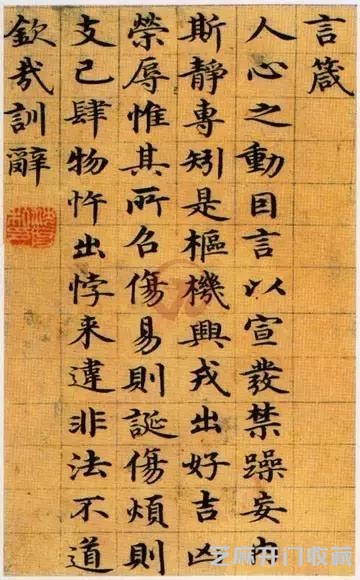 言箴
人心之動因言以宣發禁躁妄內
斯靜專矧是樞機興戎出好吉凶
榮辱惟其所召傷易則誕傷煩則
支己肆物忤出悖来違非法不道
欽哉訓辭
芝麻开门收藏